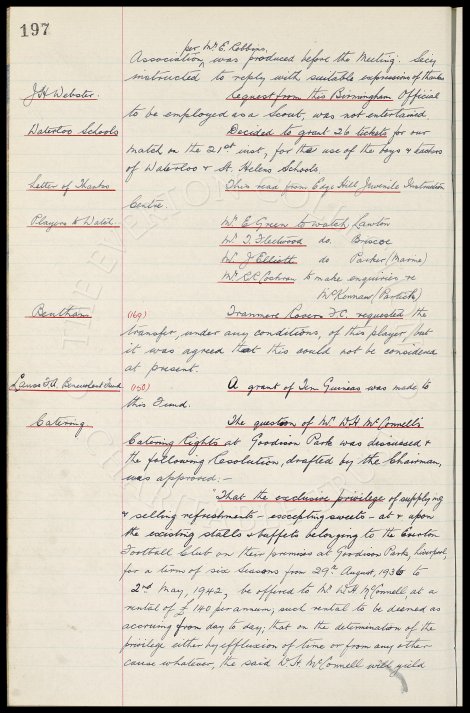 197
per Mr E. Robbins,
Association, was produced before the Meeting. Secy
instructed to reply with suitable expressions of thanks
J H Webster. Request from this Birmingham Official
to be employed as a Scout, was not entertained
Waterloo Schools Decided to grant 26 tickets for our
match on the 21st inst, for the use of the boys & teachers
of Waterloo & St. Helens Schools.
Letter of Thanks This read from Edge Hill Juvenile Instruction
Centre.
Players to Watch. Mr E Green to watch Lawton
Mr T. Fleetwood do. Briscoe
Mr J Elliott do Parker (Marine)
Mr R.C. Cochran to make enquiries re
(Partick)
Bentham (169) Tranmere Rovers F.C. requested the
transfer, under any conditions, of this player, but
it was agreed that this could not be considered
at present.
Lancs F.A. Benevolent Fund (150) A grant of Ten Guineas was made to
this Fund.
Catering The question of Mr. W.H. McConnell's
Catering Rights at Goodison Park was discussed &
the following Resolution, drafted by the Chairman,
was approved:-
"That the exclusive privilege of supplying
& selling refreshments - excepting sweets - at & upon
the existing stalls & buffets belonging to the Everton
Football Club on their premises at Goodison Park, Liverpool,
for a term of six Seasons from 29th August, 1936 to
2nd May, 1942, be offered to Mr W.H. McConnell at a
rental of £140 per annum, such rental to be deemed as
accruing from day to day, that on the determination of the
privilege either by effluxion of time or from any other
cause whatever, the said W.H. McConnell will yield